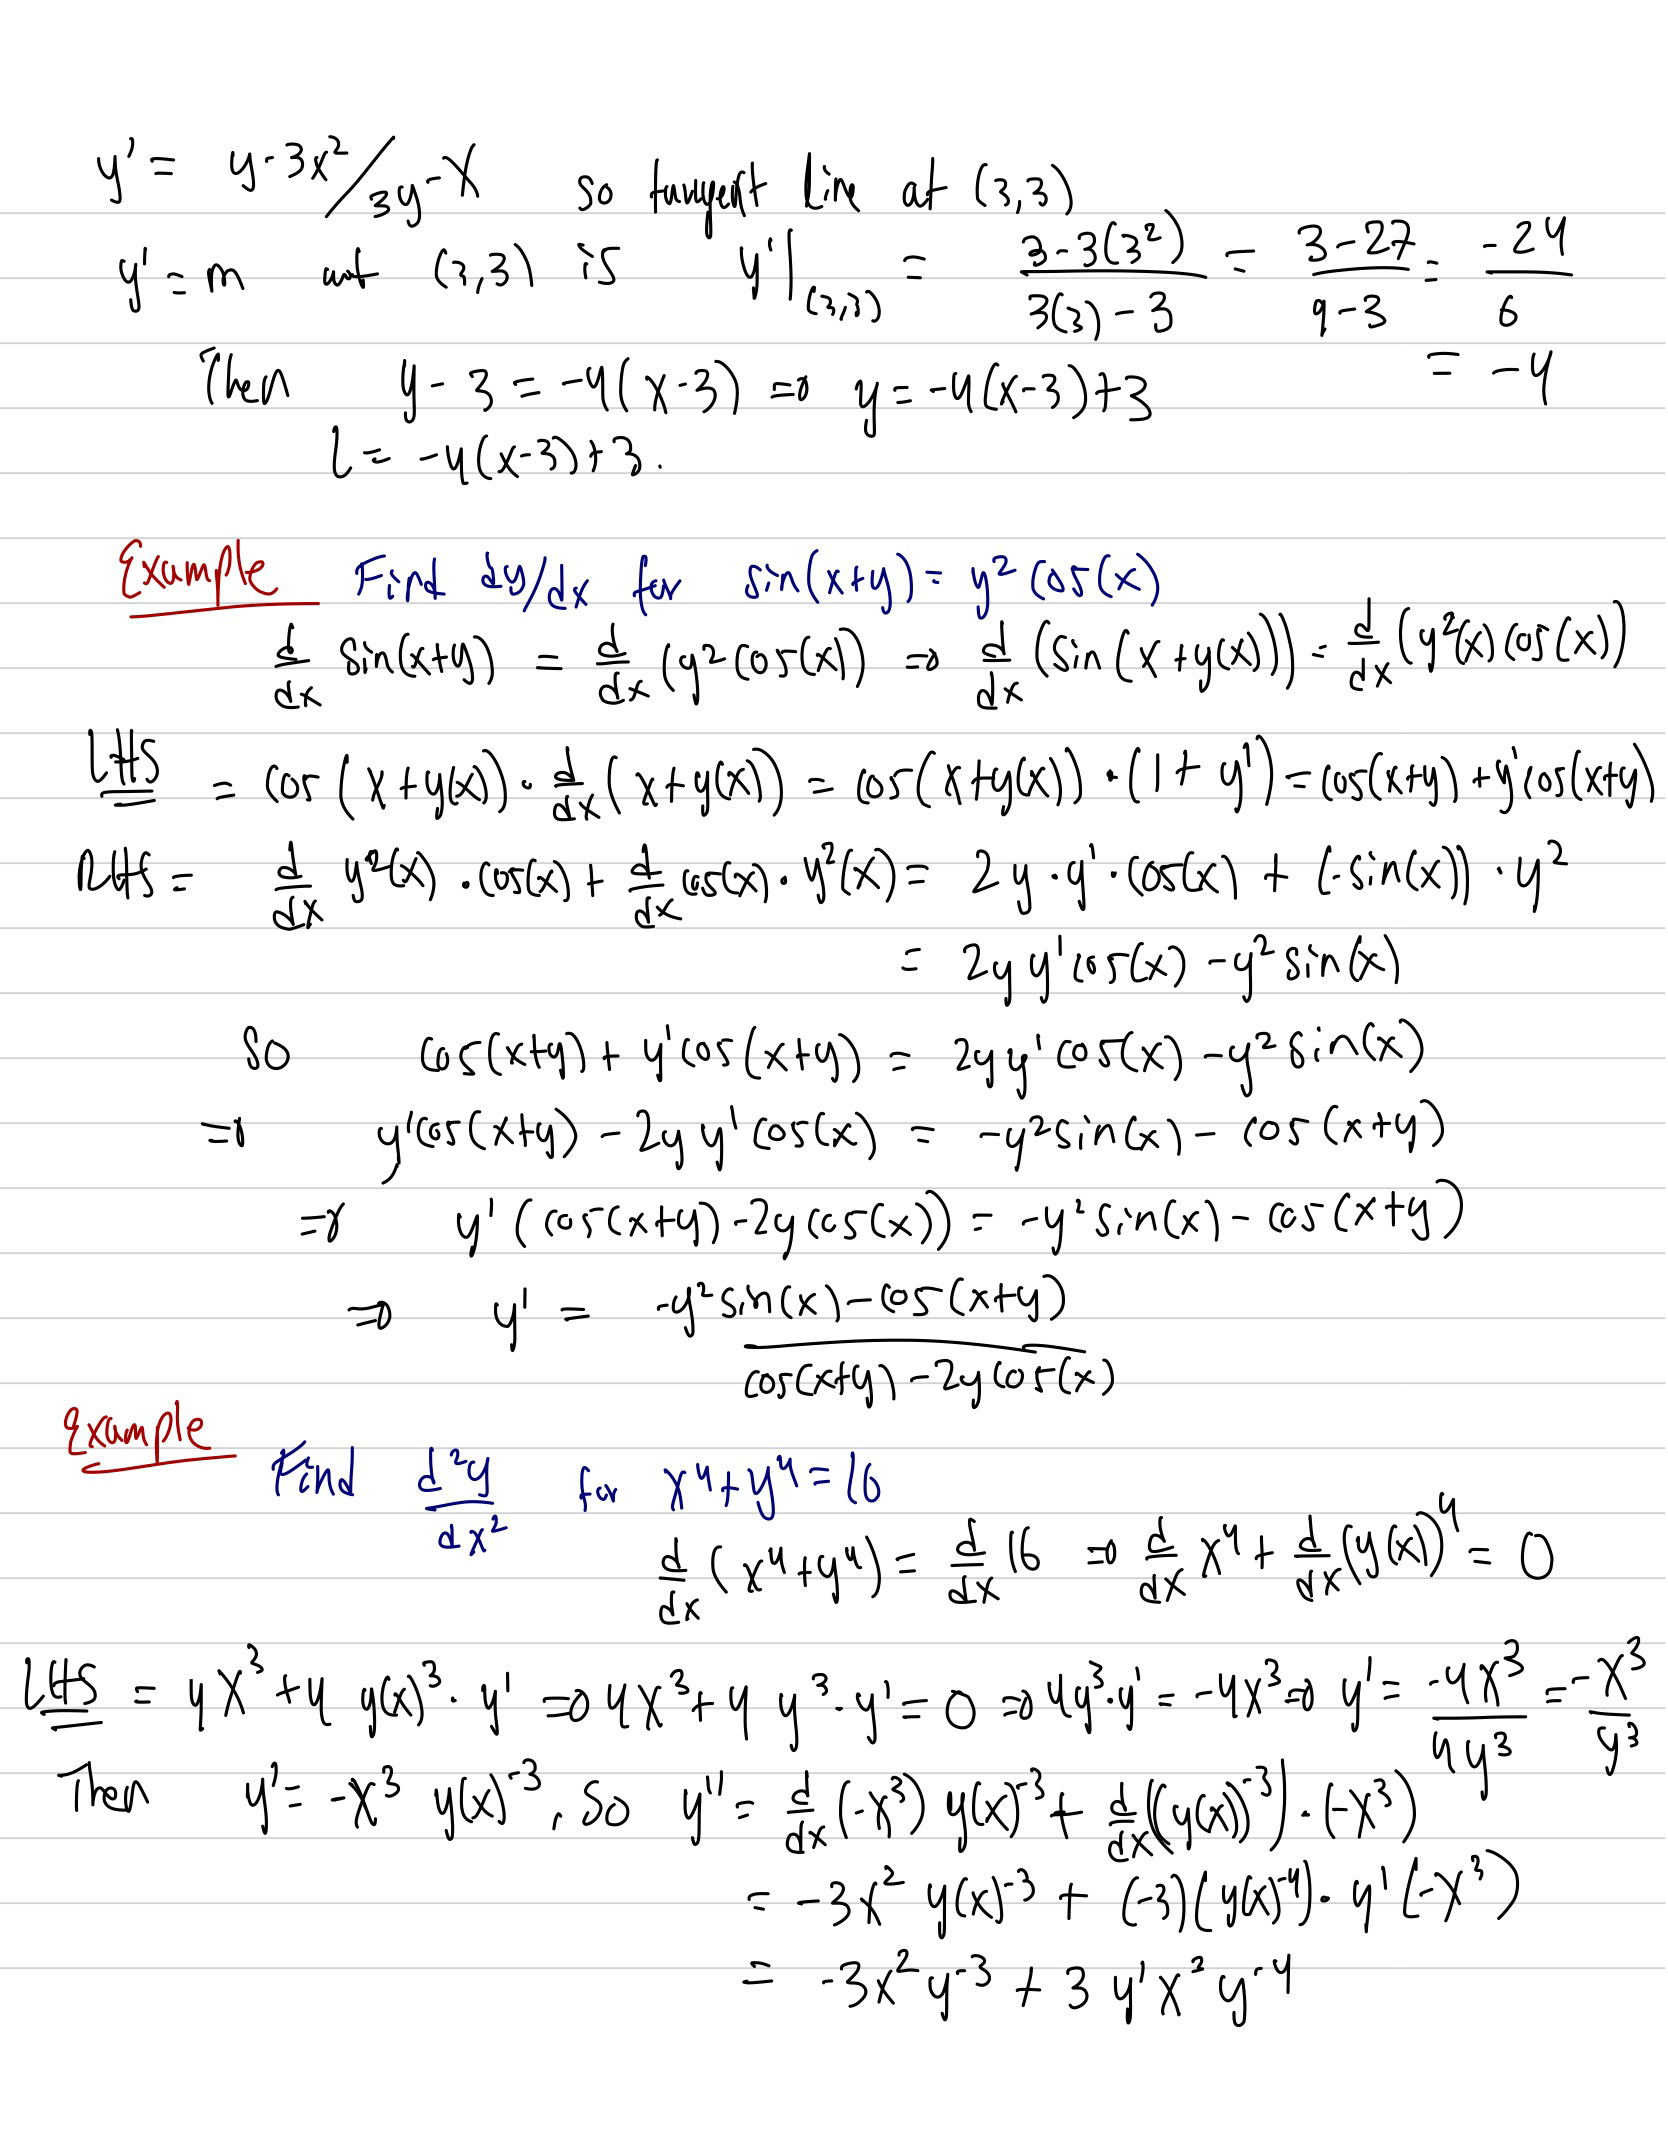 y' = y-3x²/3y-x so tangent line at (3,3)
y' = m at (3,3) is y'|(3,3) = 3-3(3²)/3(3)-3 = 3-27/9-3 = -24/6
= -4
Then y-3 = -4(x-3) => y = -4(x-3)+3
l = -4(x-3)+3.
Example Find dy/dx for sin(x+y) = y² cos(x)
d/dx sin(x+y) = d/dx (y² cos(x)) => d/dx (sin(x+y(x))) = d/dx (y²(x) cos(x))
LHS = cos(x+y(x)) · d/dx (x+y(x)) = cos(x+y(x)) · (1+y') = cos(x+y) + y'cos(x+y)
RHS = d/dx y²(x) · cos(x) + d/dx cos(x) · y²(x) = 2y · y' · cos(x) + (-sin(x)) · y²
= 2y y' cos(x) - y² sin(x)
So cos(x+y) + y'cos(x+y) = 2y y' cos(x) - y² sin(x)
=> y'cos(x+y) - 2y y' cos(x) = -y² sin(x) - cos(x+y)
=> y' (cos(x+y) - 2y cos(x)) = -y² sin(x) - cos(x+y)
=> y' = -y² sin(x) - cos(x+y)/cos(x+y) - 2y cos(x)
Example Find d²y/dx² for x⁴+y⁴=16
d/dx (x⁴+y⁴) = d/dx 16 => d/dx x⁴ + d/dx (y(x))⁴ = 0
LHS = 4x³+4 y(x)³ · y' => 4x³+4 y³ · y' = 0 => 4y³ · y' = -4x³ => y' = -4x³/4y³ = -x³/y³
Then y' = -x³ y(x)⁻³, So y'' = d/dx (-x³) y(x)⁻³ + d/dx ((y(x))⁻³) · (-x³)
= -3x² y(x)⁻³ + (-3)(y(x)⁻⁴) · y' (-x³)
= -3x² y⁻³ + 3 y' x³ y⁻⁴